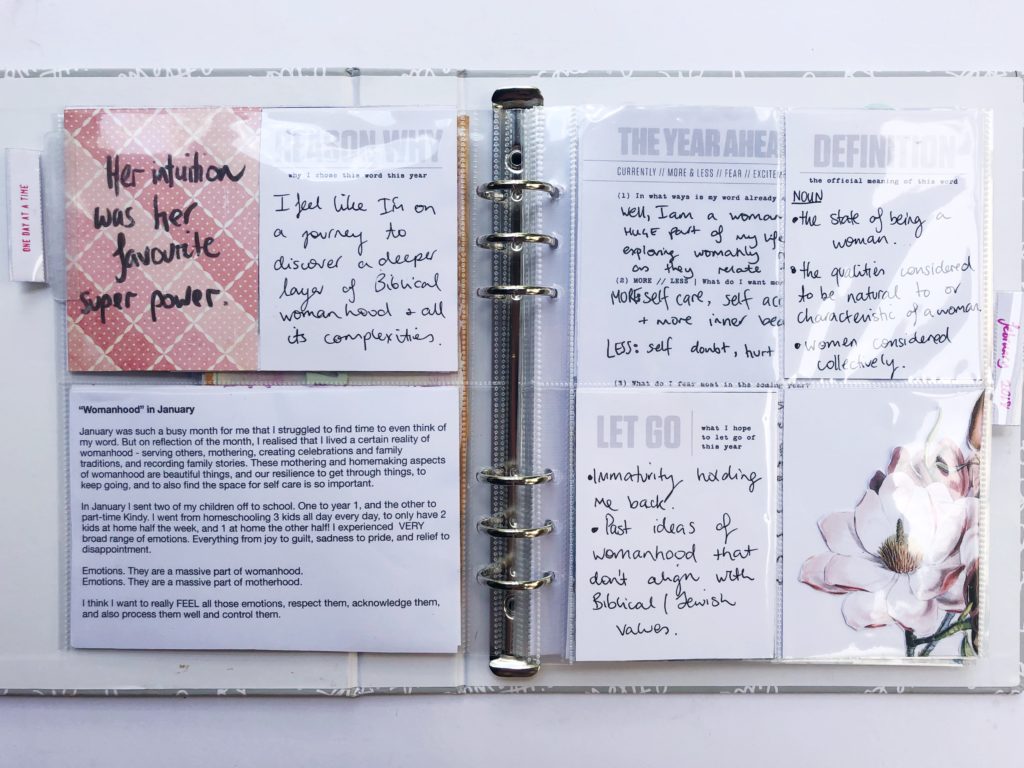 ONE DAY AT A TIME
Her intuition
was her
favourite
super power.
REASON WHY
why I chose this word this year
I feel like I'm on
a journey to
discover a deeper
layer of Biblical
womanhood + all
its complexities.
“Womanhood” in January
January was such a busy month for me that I struggled to find time to even think of
my word. But on reflection of the month, I realised that I lived a certain reality of
womanhood - serving others, mothering, creating celebrations and family
traditions, and recording family stories. These mothering and homemaking aspects
of womanhood are beautiful things, and our resilience to get through things, to
keep going, and to also find the space for self care is so important.
In January I sent two of my children off to school. One to year 1, and the other to
part-time Kindy. I went from homeschooling 3 kids all day every day, to only have 2
kids at home half the week, and 1 at home the other half! I experienced VERY
broad range of emotions. Everything from joy to guilt, sadness to pride, and relief to
disappointment.
Emotions. They are a massive part of womanhood.
Emotions. They are a massive part of motherhood.
I think I want to really FEEL all those emotions, respect them, acknowledge them,
and also process them well and control them.
THE YEAR AHEA
CURRENTLY // MORE & LESS // FEAR // EXCITE
(1) In what ways is my word already
Well, I am a woman
HUGE part of my life
exploring womanly
as they relate
(2) MORE // LESS | What do I want mor
MORE: self care, self acc
+ more inner bea
LESS: self doubt, hurt
(3) What do I fear most in the coming year?
DEFINITION
the official meaning of this word
NOUN
• the state of being a
woman.
• the qualities considered
to be natural to or
characteristic of a woman
• women considered
collectively.
LET GO
what I hope
to let go of
this year
• Immaturity holding
me back.
• Past ideas of
womanhood that
don't align with
Biblical / Jewish
values.
January